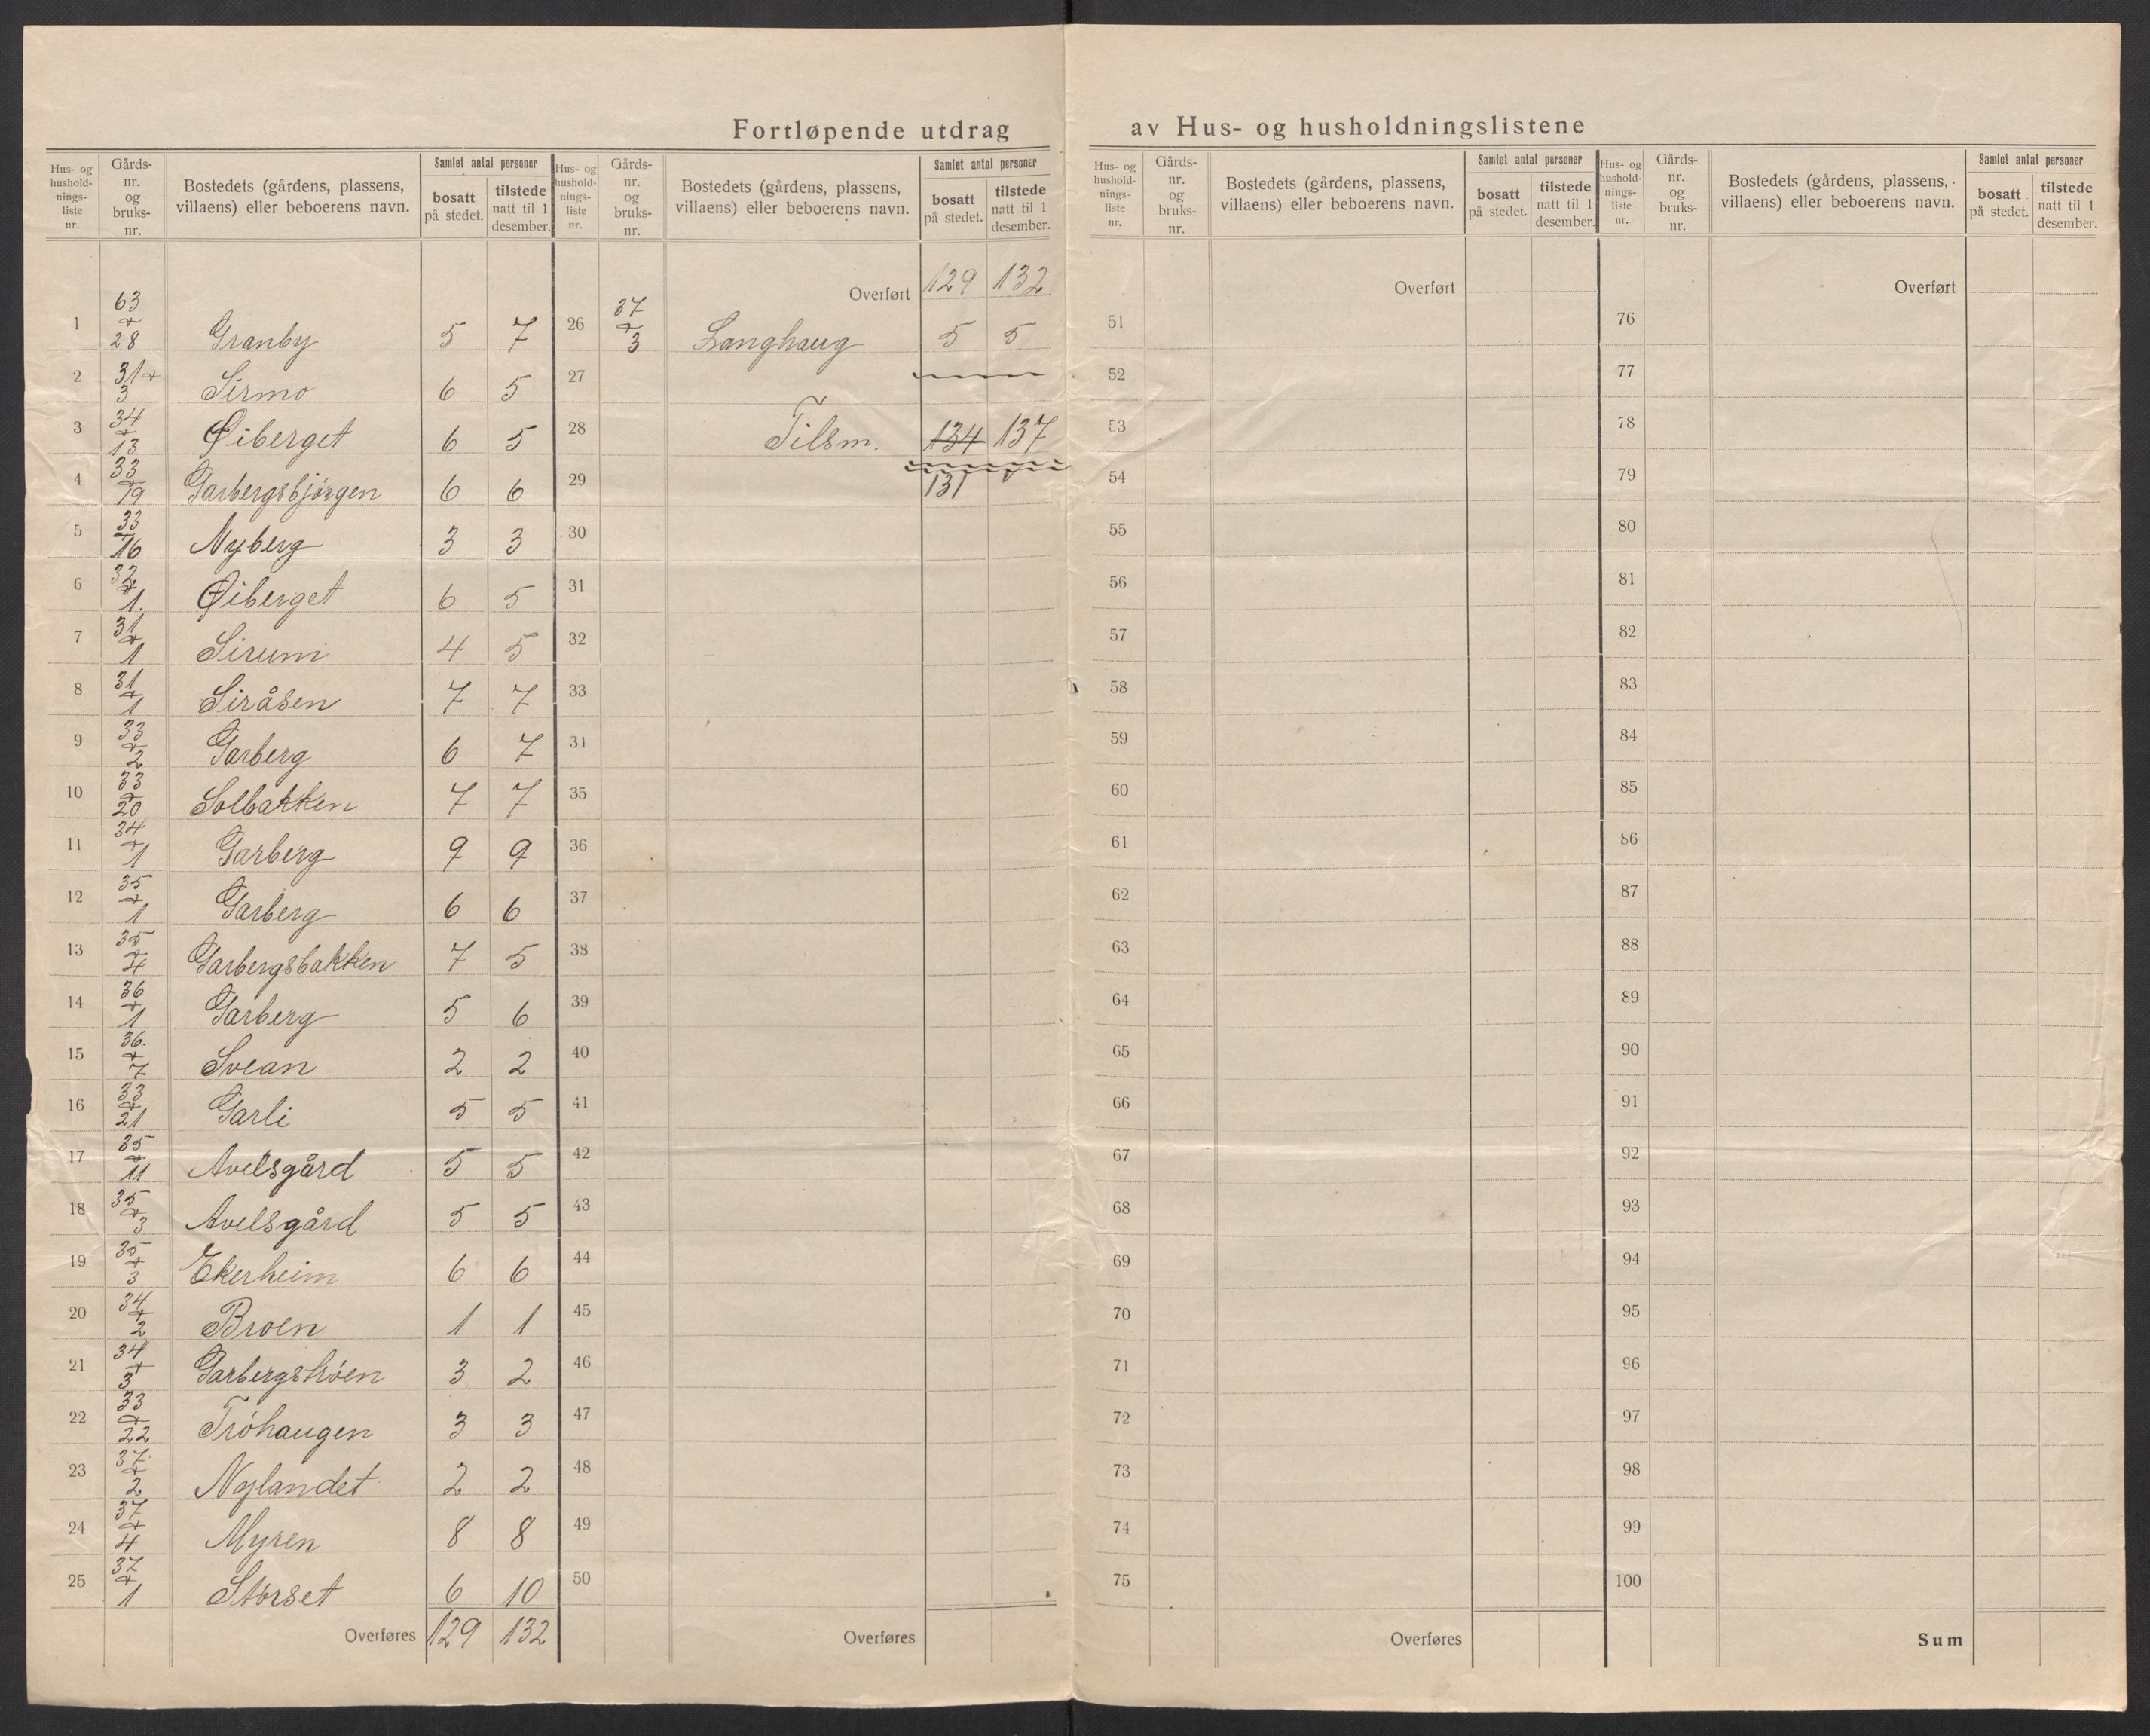 Fortløpende utdrag av Hus- og husholdningslistene
Hus- og hushold-nings-liste nr. | Gårds-nr. og bruks-nr. | Bostedets (gårdens, plassens, villaens) eller beboerens navn. | Samlet antal personer | bosatt på stedet. | tilstede natt til 1 desember.
1 63/28 Granby 5 7
2 31/3 Sirmo 6 5
3 34/13 Øiberget 6 5
4 33/19 Garbergsbjørgen 6 6
5 33/16 Nyberg 3 3
6 32/1. Øiberget 6 5
7 31/1 Sirum 4 5
8 31/1 Siråsen 7 7
9 33/2 Garberg 6 7
10 33/20 Solbakken 7 7
11 34/1 Garberg 9 9
12 35/1 Garberg 6 6
13 35/4 Garbergsbakken 7 5
14 36/1 Garberg 5 6
15 36./7 Svean 2 2
16 33/21 Garli 5 5
17 35/11 Avelsgård 5 5
18 35/3 Avelsgård 5 5
19 35/3 Ekerheim 6 6
20 34/2 Broen 1 1
21 34/3 Garbergstrøen 3 2
22 33/22 Trøhaugen 3 3
23 37/2 Nylandet 2 2
24 37/4 Myren 8 8
25 37/1 Storset 6 10
Overføres 129 132
Hus- og hushold-nings-liste nr. | Gårds-nr. og bruks-nr. | Bostedets (gårdens, plassens, villaens) eller beboerens navn. | Samlet antal personer | bosatt på stedet. | tilstede natt til 1 desember.
Overført 129 132
26 37/3 Langhaug 5 5
27
28 Tilsm. 134 137
29 131
30
31
32
33
31
35
36
37
38
39
40
41
42
43
44
45
46
47
48
49
50
Overføres
Hus- og hushold-nings-liste nr. | Gårds-nr. og bruks-nr. | Bostedets (gårdens, plassens, villaens) eller beboerens navn. | Samlet antal personer | bosatt på stedet. | tilstede natt til 1 desember.
Overført
51
52
53
54
55
56
57
58
59
60
61
62
63
64
65
66
67
68
69
70
71
72
73
74
75
Overføres
Hus- og hushold-nings-liste nr. | Gårds-nr. og bruks-nr. | Bostedets (gårdens, plassens, villaens) eller beboerens navn. | Samlet antal personer | bosatt på stedet. | tilstede natt til 1 desember.
Overført
76
77
78
79
80
81
82
83
84
85
86
87
88
89
90
91
92
93
94
95
96
97
98
99
100
Sum